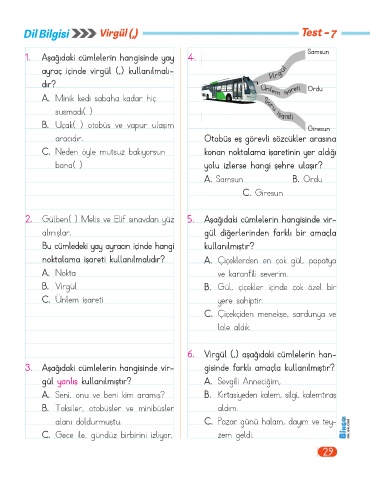 Dil Bilgisi Virgül (,) Test - 7
1. Aşağıdaki cümlelerin hangisinde yay
ayraç içinde virgül (,) kullanılmalı-
dır?
A. Minik kedi sabaha kadar hiç
susmadı( )
B. Uçak( ) otobüs ve vapur ulaşım
aracıdır.
C. Neden öyle mutsuz bakıyorsun
bana( )
2. Gülben( ) Melis ve Elif sınavdan yüz
almışlar.
Bu cümledeki yay ayracın içinde hangi
noktalama işareti kullanılmalıdır?
A. Nokta
B. Virgül
C. Ünlem işareti
3. Aşağıdaki cümlelerin hangisinde vir-
gül yanlış kullanılmıştır?
A. Seni, onu ve beni kim aramış?
B. Taksiler, otobüsler ve minibüsler
alanı doldurmuştu.
C. Gece ile, gündüz birbirini izliyor.
4.
Samsun
Virgül
Ünlem işareti
Ordu
Soru işareti
Giresun
Otobüs eş görevli sözcükler arasına
konan noktalama işaretinin yer aldığı
yolu izlerse hangi şehre ulaşır?
A. Samsun B. Ordu
C. Giresun
5. Aşağıdaki cümlelerin hangisinde vir-
gül diğerlerinden farklı bir amaçla
kullanılmıştır?
A. Çiçeklerden en çok gül, papatya
ve karanfili severim.
B. Gül, çiçekler içinde çok özel bir
yere sahiptir.
C. Çiçekçiden menekşe, sardunya ve
lale aldık.
6. Virgül (,) aşağıdaki cümlelerin han-
gisinde farklı amaçla kullanılmıştır?
A. Sevgili Anneciğim,
B. Kırtasiyeden kalem, silgi, kalemtıraş
aldım.
C. Pazar günü halam, dayım ve tey-
zem geldi.
29